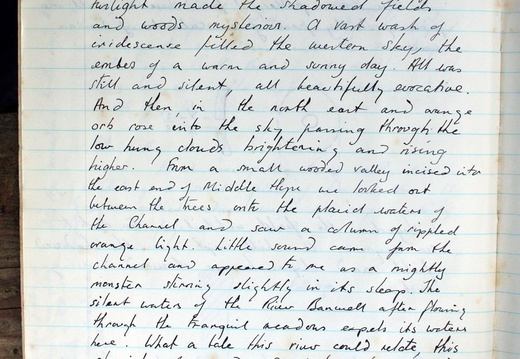 twilight made the shadowed fields
and woods mysterious. A vast wash of
iridescence filled the western sky, the
embes of a warm and sunny day. All was
still and silent, all beautifully evocative.
And then, in the north east and orange
orb rose into the sky passing through the
low hung clouds brightening and rising
higher. From a small wooded valley incised into
the east end of Middle Hope we looked out
between the trees onto the placid waters of
the Channel and saw a column of rippled
orange light. Little sound came from the
channel and appeared to me as a mightly
monster stirring slightly in its sleep. The
silent waters of the River Banwell after flowing
through the tranquil meadows expels its waters
here. What a tale this river could relate this